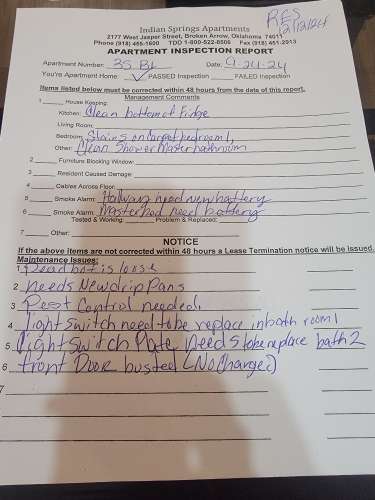 RES
2/12/24
Indian Springs Apartments
2177 West Jasper Street, Broken Arrow, Oklahoma 74011
Phone (918) 455-1600 TDD 1-800-522-8506 Fax (918) 451-2913
APARTMENT INSPECTION REPORT
Apartment Number: 35 BL Date: 9-24-24
You're Apartment Home: ✓ PASSED Inspection FAILED Inspection
Items listed below must be corrected within 48 hours from the date of this report.
Management Comments
1 House Keeping:
Kitchen: Clean bottom of Fridge
Living Room:
Bedroom: Stains on Carpet bedroom 1,
Other: Clean Shower Master bathroom
2 Furniture Blocking Window:
3 Resident Caused Damage:
4 Cables Across Floor:
5 Smoke Alarm: Hallway need new battery
6 Smoke Alarm: Master bed need battery
Tested & Working: Problem & Replaced:
7 Other:
NOTICE
If the above items are not corrected within 48 hours a Lease Termination notice will be issued.
Maintenance Issues:
1 Dead bolt is loose
2 needs New drip Pans
3 Pest Control needed.
4 light switch need to be replace in bath room 1
5. light Switch Plate needs to be replace bath 2
6 front Door busted (No Charge)
7